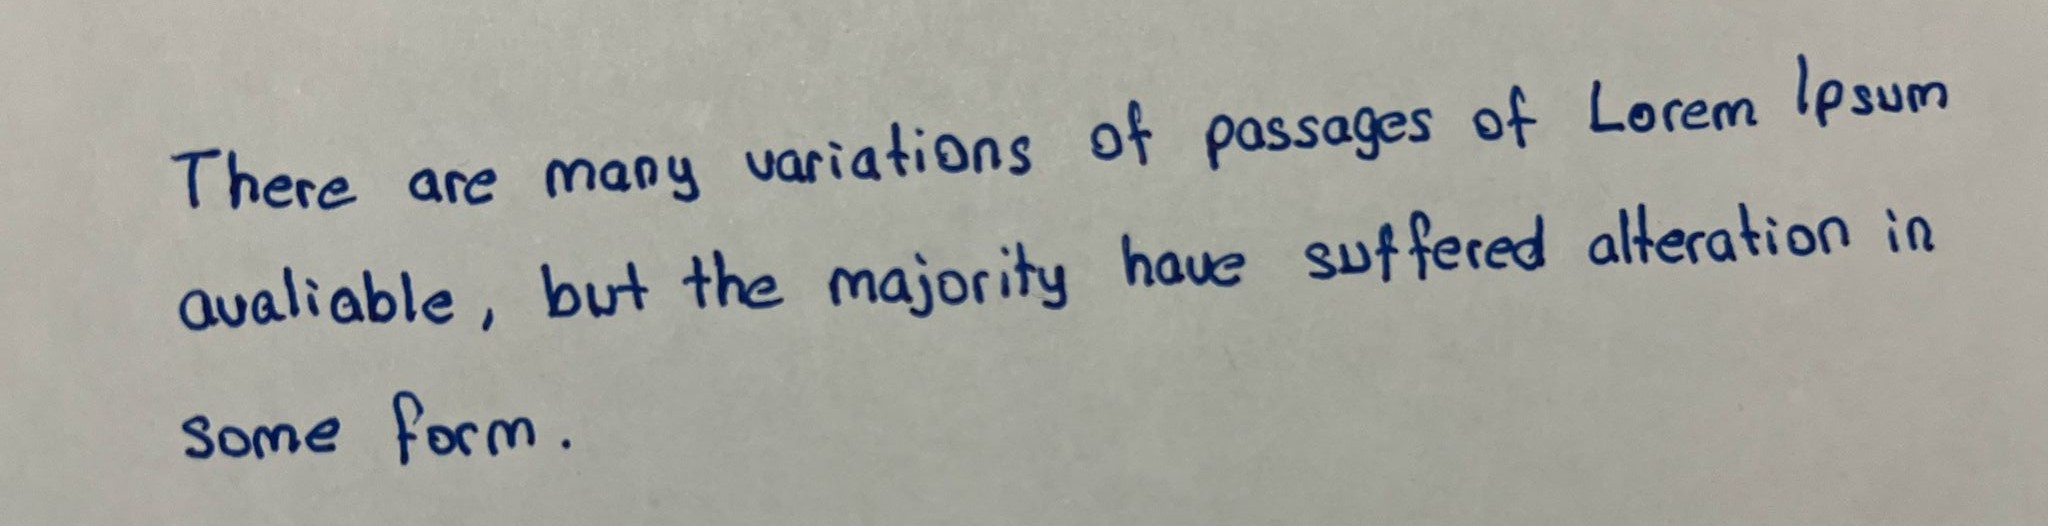 There are many variations of passages of Lorem Ipsum
avaliable, but the majority have suffered alteration in
some form.